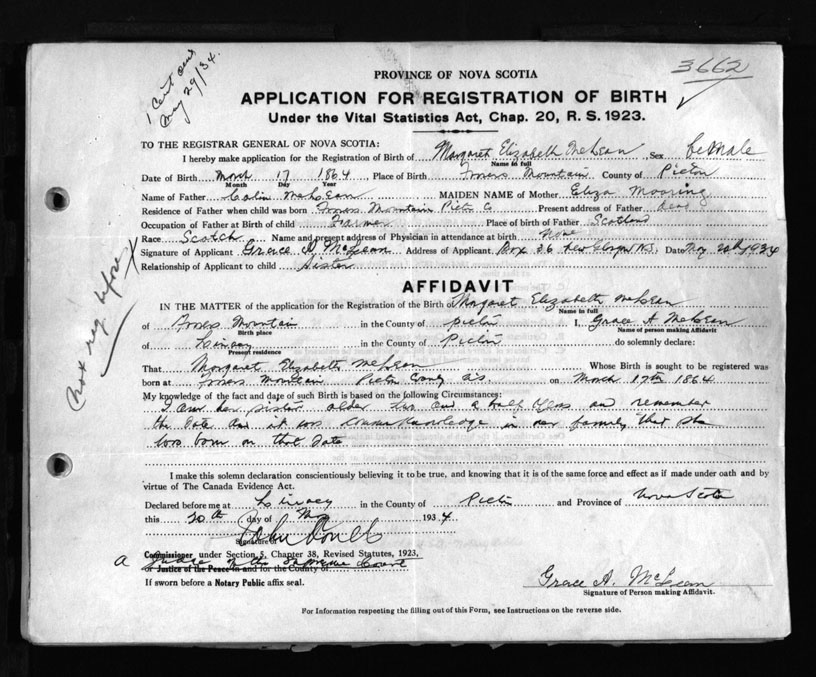 1 Cert
May 29/34.
3662
PROVINCE OF NOVA SCOTIA
APPLICATION FOR REGISTRATION OF BIRTH
Under the Vital Statistics Act, Chap. 20, R. S. 1923.
TO THE REGISTRAR GENERAL OF NOVA SCOTIA:
I hereby make application for the Registration of Birth of Margaret Elizabeth McLean Sex female
Name in full
Date of Birth March 17 1864 Place of Birth Mountain County of Pictou
Month Day Year
Name of Father Colin McLean MAIDEN NAME of Mother Eliza
Residence of Father when child was born Mountain Pictou Co Present address of Father Dead
Occupation of Father at Birth of child Farmer Place of birth of Father Scotland
Race Scotch Name and present address of Physician in attendance at birth None
Signature of Applicant Grace A McLean Address of Applicant Box 36 New Glasgow N.S. Date May 1934
Relationship of Applicant to child Sister
Not reg before
AFFIDAVIT
IN THE MATTER of the application for the Registration of the Birth of Margaret Elizabeth McLean
Name in full
of Mountain in the County of Pictou I, Grace A McLean
Birth place Name of person making affidavit
of in the County of Pictou do solemnly declare:
Present residence
That Margaret Elizabeth McLean Whose Birth is sought to be registered was
born at Mountain Pictou County N.S. on March 17th 1864
My knowledge of the fact and date of such Birth is based on the following Circumstances:
I am her sister older and a half years and remember
the date and it was knowledge in our family that she
was born on that date
I make this solemn declaration conscientiously believing it to be true, and knowing that it is of the same force and effect as if made under oath and by
virtue of The Canada Evidence Act.
Declared before me at in the County of Pictou and Province of Nova Scotia
this 20th day of May 1934
John
Signature of
Commissioner under Section 5, Chapter 38, Revised Statutes, 1923,
a Judge of the Supreme Court
or Justice of the Peace in and for the County of
If sworn before a Notary Public affix seal.
Grace A. McLean
Signature of Person making Affidavit.
For Information respecting the filling out of this Form, see Instructions on the reverse side.